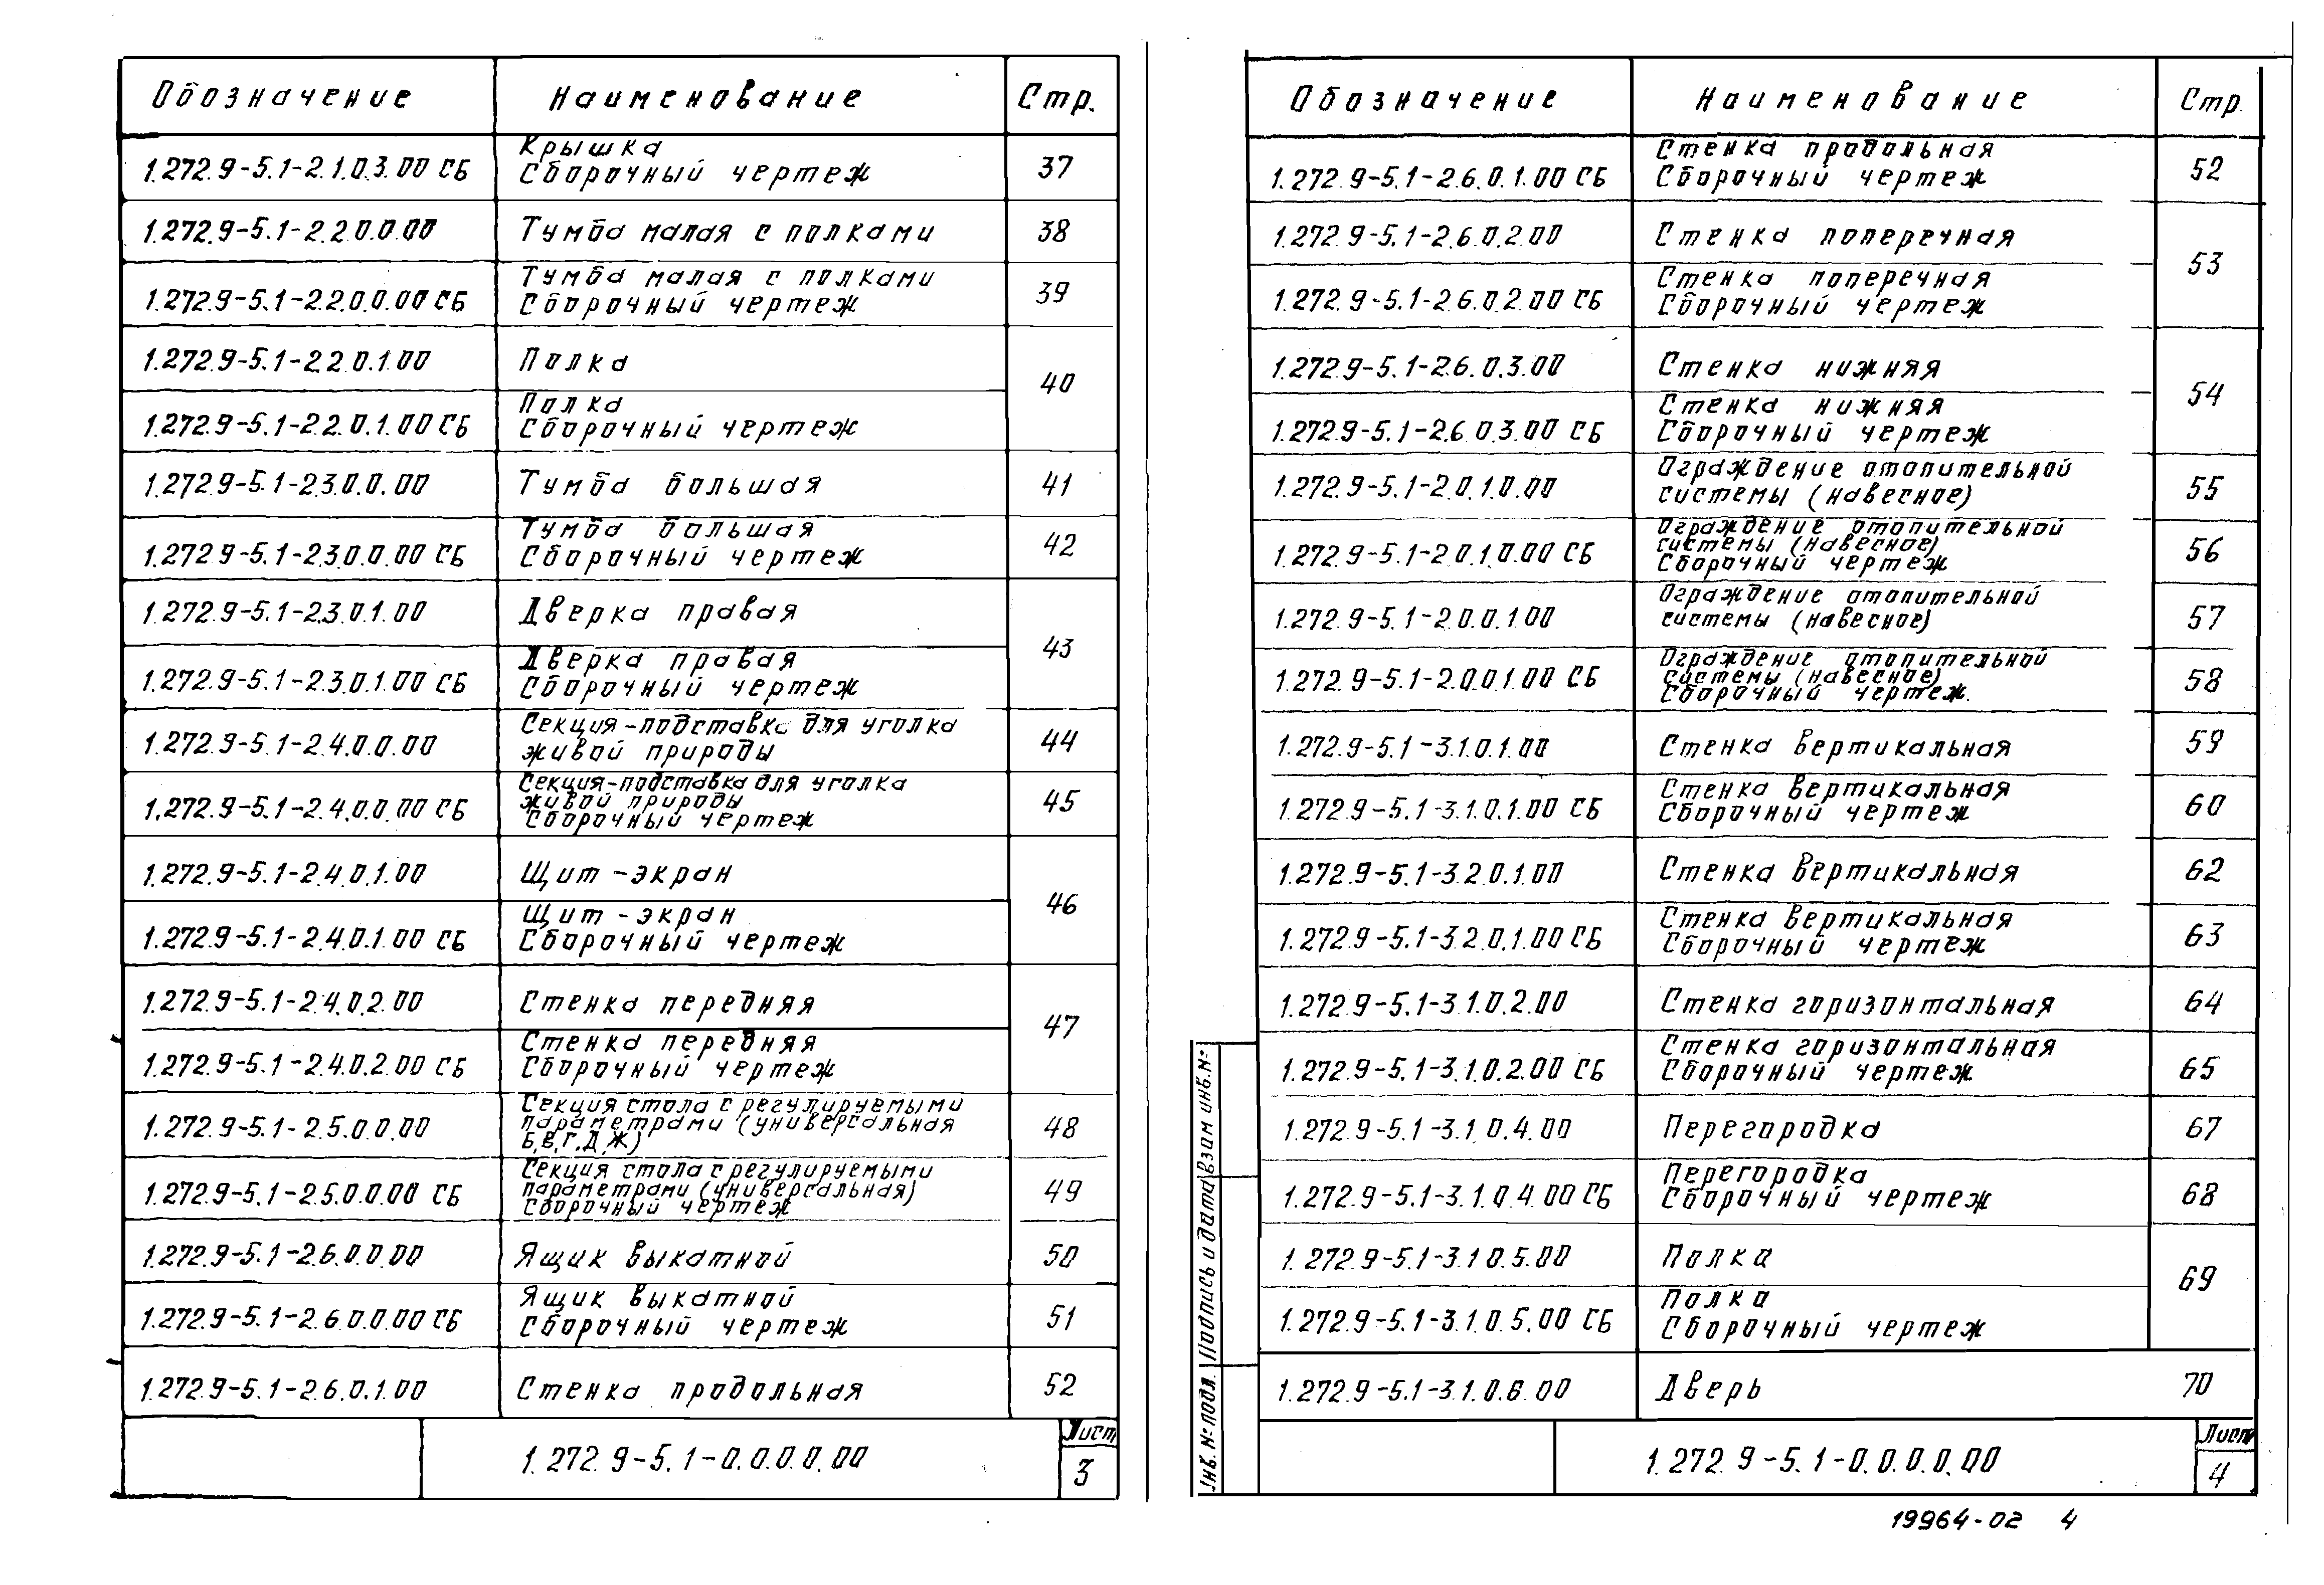 Обозначение Наименование Стр.
Крышка
1.272.9-5.1-2.1.0.3.00 СБ Сборочный чертеж 37
1.272.9-5.1-2.2.0.0.00 Тумба малая с полками 38
Тумба малая с полками
1.272.9-5.1-2.2.0.0.00 СБ Сборочный чертеж 39
1.272.9-5.1-2.2.0.1.00 Полка
40
Полка
1.272.9-5.1-2.2.0.1.00 СБ Сборочный чертеж
1.272.9-5.1-2.3.0.0.00 Тумба большая 41
Тумба большая
1.272.9-5.1-2.3.0.0.00 СБ Сборочный чертеж 42
1.272.9-5.1-2.3.0.1.00 Дверка правая
43
Дверка правая
1.272.9-5.1-2.3.0.1.00 СБ Сборочный чертеж
Секция-подставка для уголка
1.272.9-5.1-2.4.0.0.00 живой природы 44
Секция-подставка для уголка
живой природы
1.272.9-5.1-2.4.0.0.00 СБ Сборочный чертеж 45
1.272.9-5.1-2.4.0.1.00 Щит-экран
46
Щит-экран
1.272.9-5.1-2.4.0.1.00 СБ Сборочный чертеж
1.272.9-5.1-2.4.0.2.00 Стенка передняя
47
Стенка передняя
1.272.9-5.1-2.4.0.2.00 СБ Сборочный чертеж
Секция стола с регулируемыми
параметрами (универсальная
1.272.9-5.1-2.5.0.0.00 Б,В,Г,Д,Ж) 48
Секция стола с регулируемыми
параметрами (универсальная)
1.272.9-5.1-2.5.0.0.00 СБ Сборочный чертеж 49
1.272.9-5.1-2.6.0.0.00 Ящик выкатной 50
Ящик выкатной
1.272.9-5.1-2.6.0.0.00 СБ Сборочный чертеж 51
1.272.9-5.1-2.6.0.1.00 Стенка продольная 52
1.272.9-5.1-0.0.0.0.00
Лист
3
Обозначение Наименование Стр.
Стенка продольная
1.272.9-5.1-2.6.0.1.00 СБ Сборочный чертеж 52
1.272.9-5.1-2.6.0.2.00 Стенка поперечная
53
Стенка поперечная
1.272.9-5.1-2.6.0.2.00 СБ Сборочный чертеж
1.272.9-5.1-2.6.0.3.00 Стенка нижняя
54
Стенка нижняя
1.272.9-5.1-2.6.0.3.00 СБ Сборочный чертеж
Ограждение отопительной
1.272.9-5.1-2.0.1.0.00 системы (навесное) 55
Ограждение отопительной
системы (навесное)
1.272.9-5.1-2.0.1.0.00 СБ Сборочный чертеж 56
Ограждение отопительной
1.272.9-5.1-2.0.0.1.00 системы (навесное) 57
Ограждение отопительной
системы (навесное)
1.272.9-5.1-2.0.0.1.00 СБ Сборочный чертеж. 58
1.272.9-5.1-3.1.0.1.00 Стенка вертикальная 59
Стенка вертикальная
1.272.9-5.1-3.1.0.1.00 СБ Сборочный чертеж 60
1.272.9-5.1-3.2.0.1.00 Стенка вертикальная 62
Стенка вертикальная
1.272.9-5.1-3.2.0.1.00 СБ Сборочный чертеж 63
1.272.9-5.1-3.1.0.2.00 Стенка горизонтальная 64
Стенка горизонтальная
1.272.9-5.1-3.1.0.2.00 СБ Сборочный чертеж 65
1.272.9-5.1-3.1.0.4.00 Перегородка 67
Перегородка
1.272.9-5.1-3.1.0.4.00 СБ Сборочный чертеж 68
1.272.9-5.1-3.1.0.5.00 Полка
69
Полка
1.272.9-5.1-3.1.0.5.00 СБ Сборочный чертеж
1.272.9-5.1-3.1.0.6.00 Дверь 70
Инв. № подл. Подпись и дата Взам инв.№
1.272.9-5.1-0.0.0.0.00
Лист
4
19964-02 4